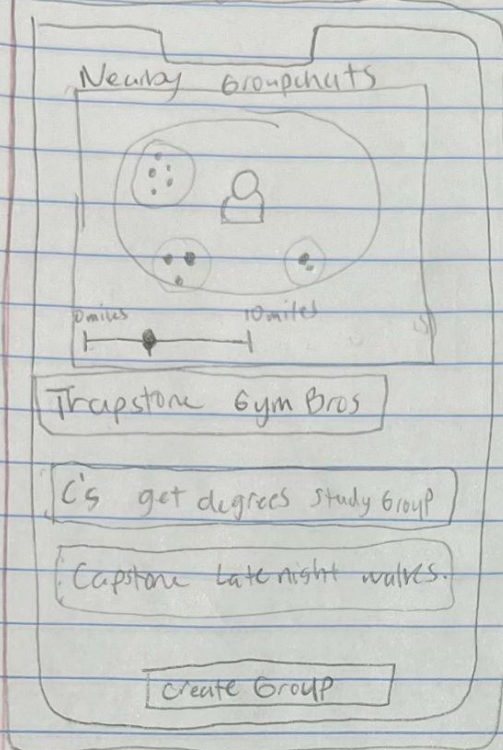 Nearby Groupchats
0miles 10miles
Trapstone Gym Bros
C's get degrees study Group
Capstone Late night walks.
Create Group